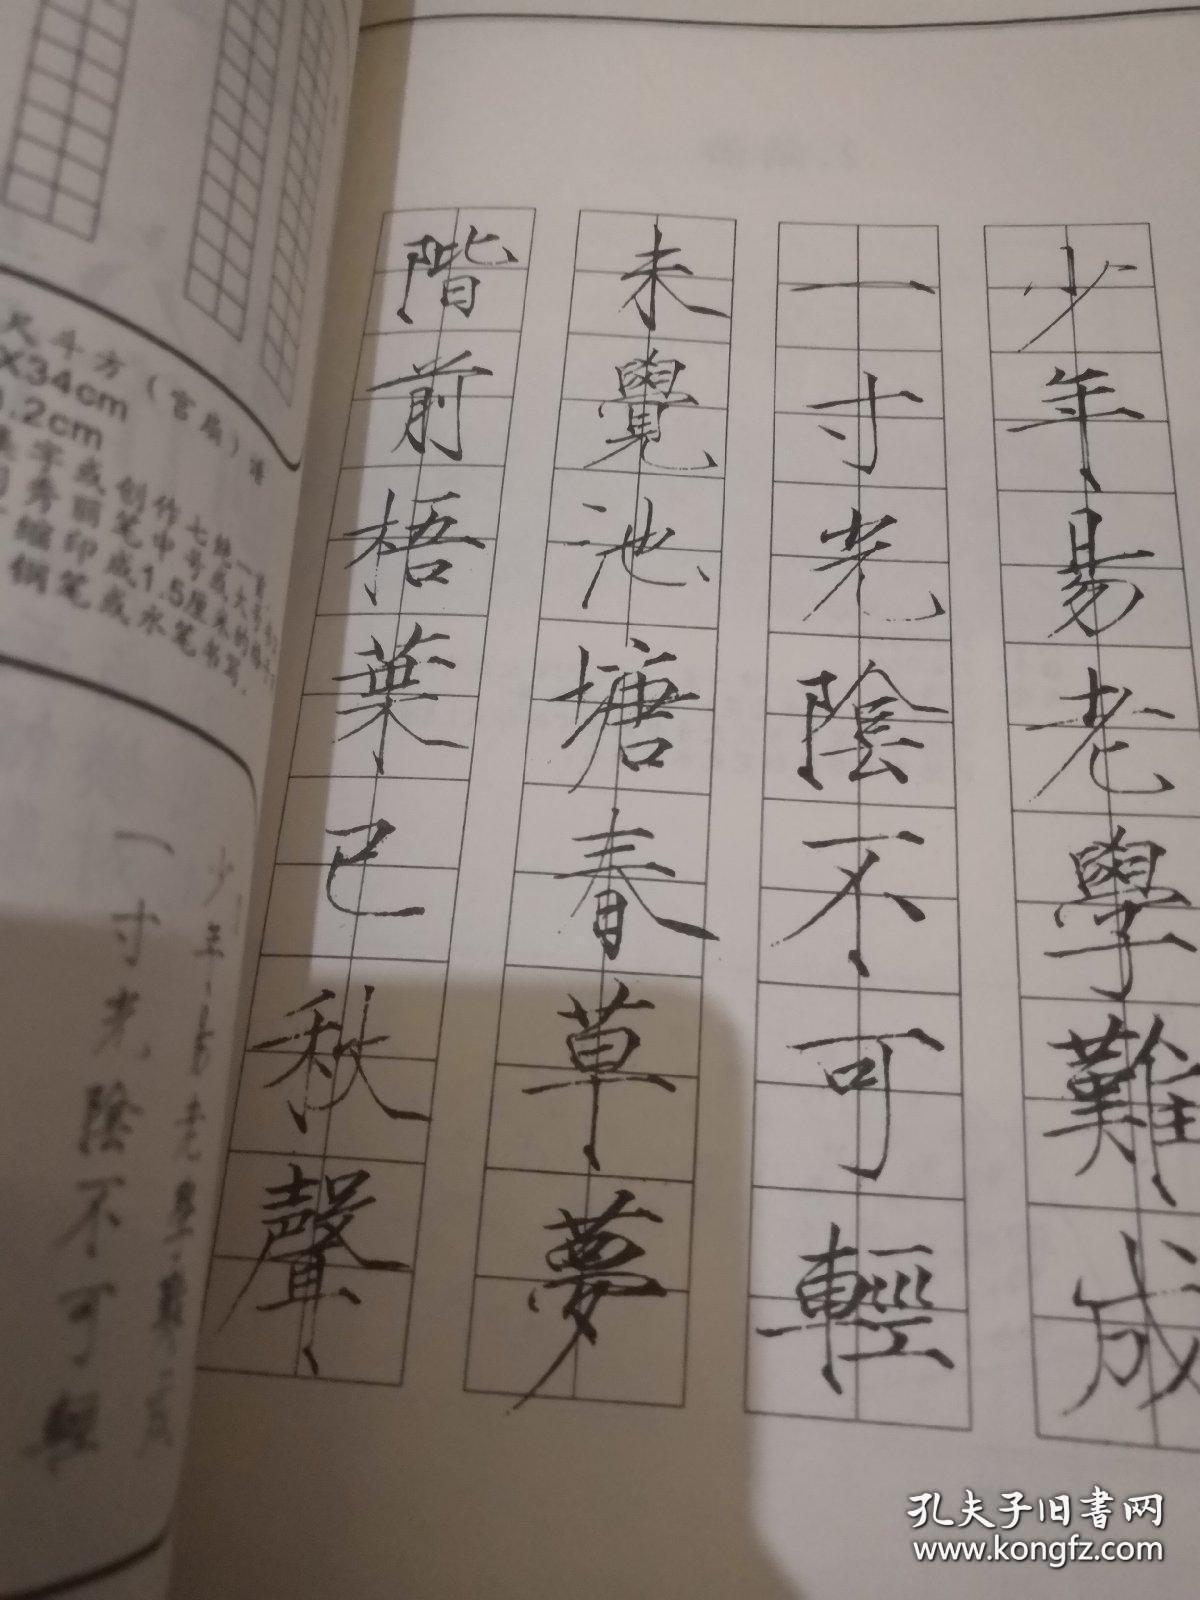 少年易老學難成
一寸光陰不可輕
未覺池塘春草夢
階前梧葉已秋聲
尺斗方（宫扇）请
X34cm
1.2cm
集字或创作七绝一首
秀丽笔中号或大号书
缩印成1.5厘米的格
钢笔或水笔书写。
少年易老學難成
一寸光陰不可輕
孔夫子旧书网
www.kongfz.com